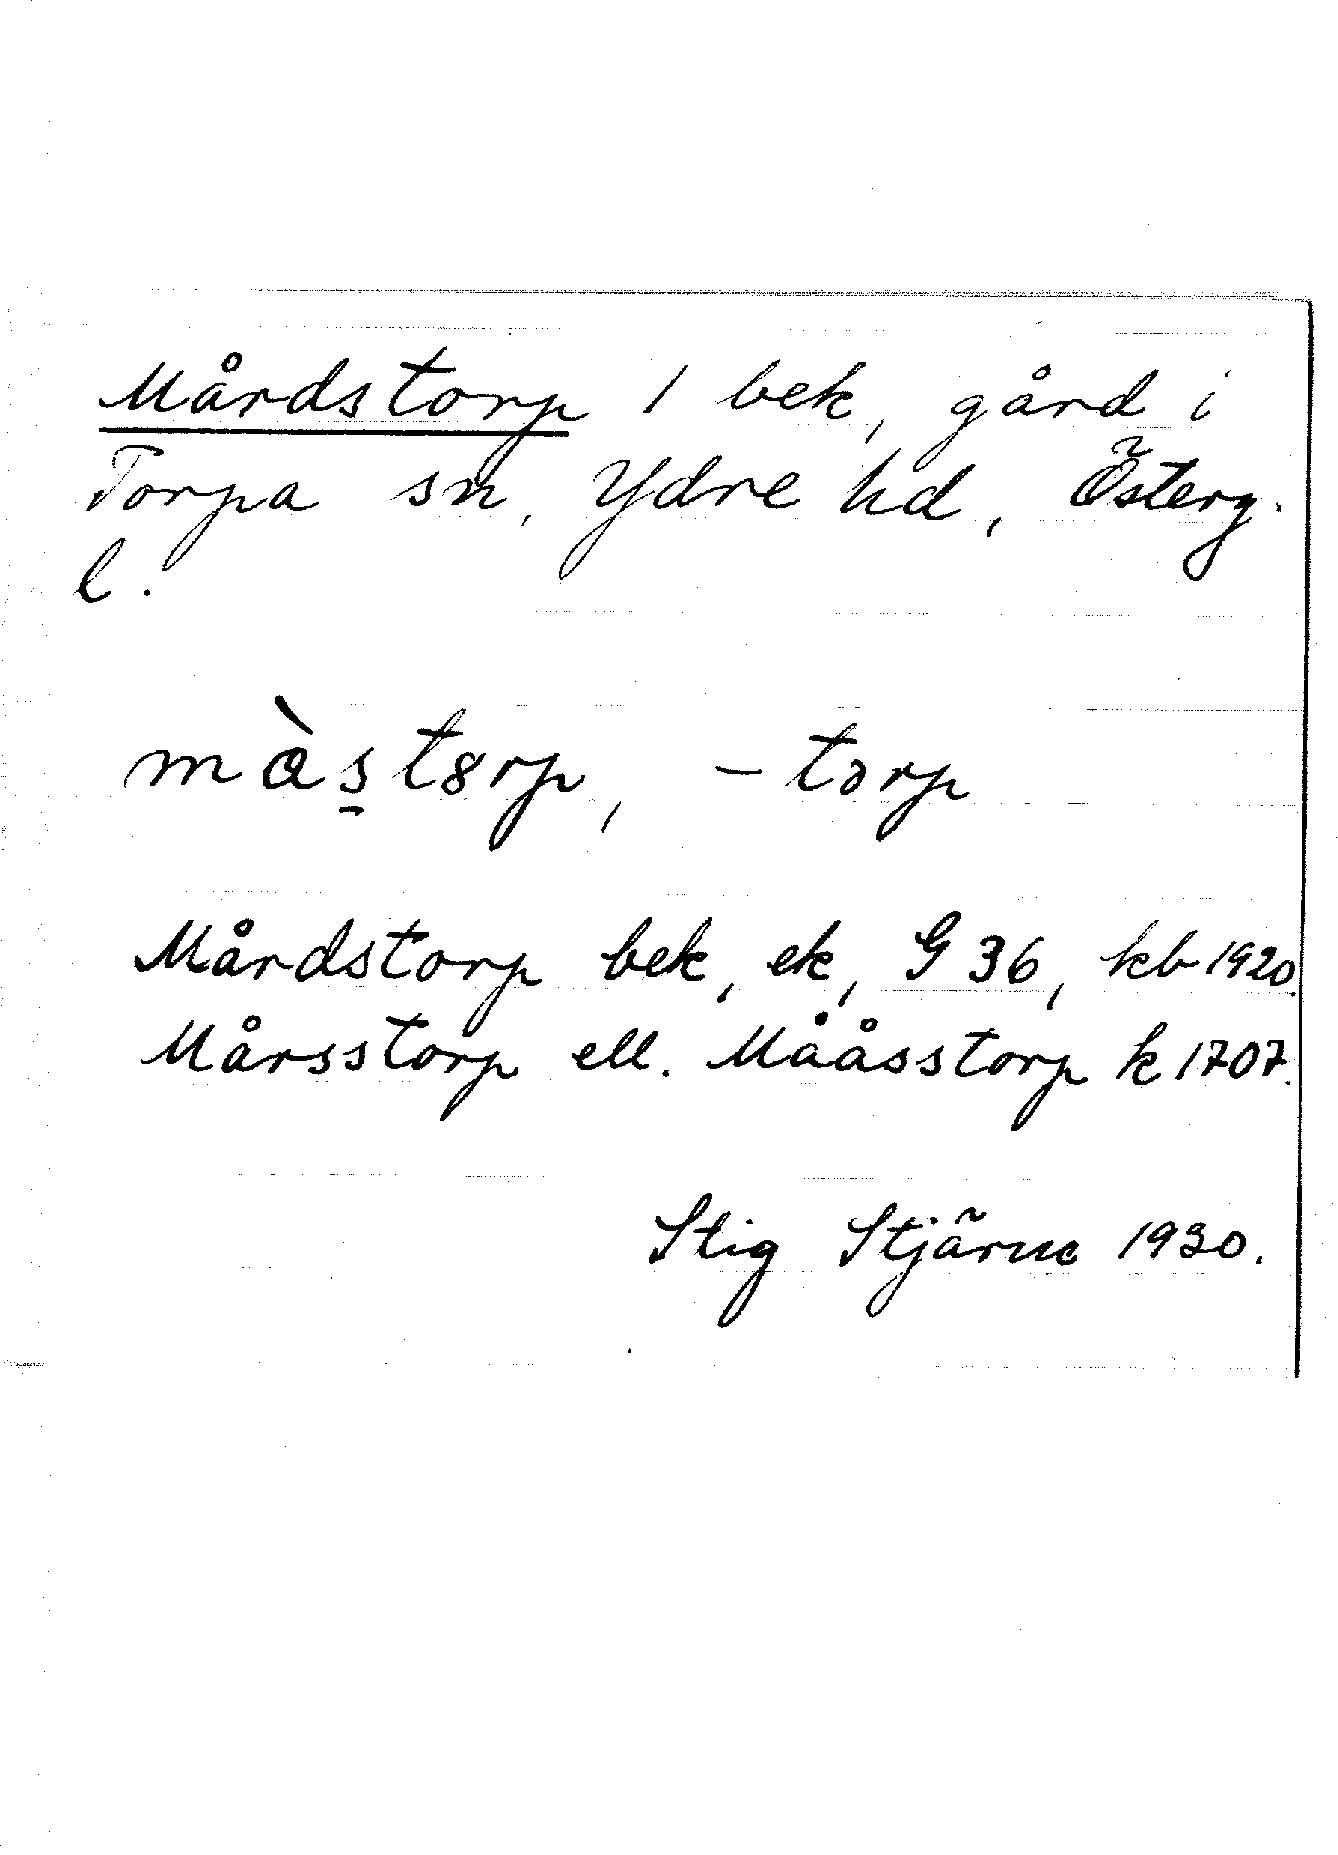 Mårdstorp 1 bek, gård i
Torpa sn, Ydre hd, Österg.
l.
màs̱t8rp, -torp
Mårdstorp bek, ek, G 36, kb 1920.
Mårsstorp ell. Måässtorp k 1707.
Stig Stjärne 1930.